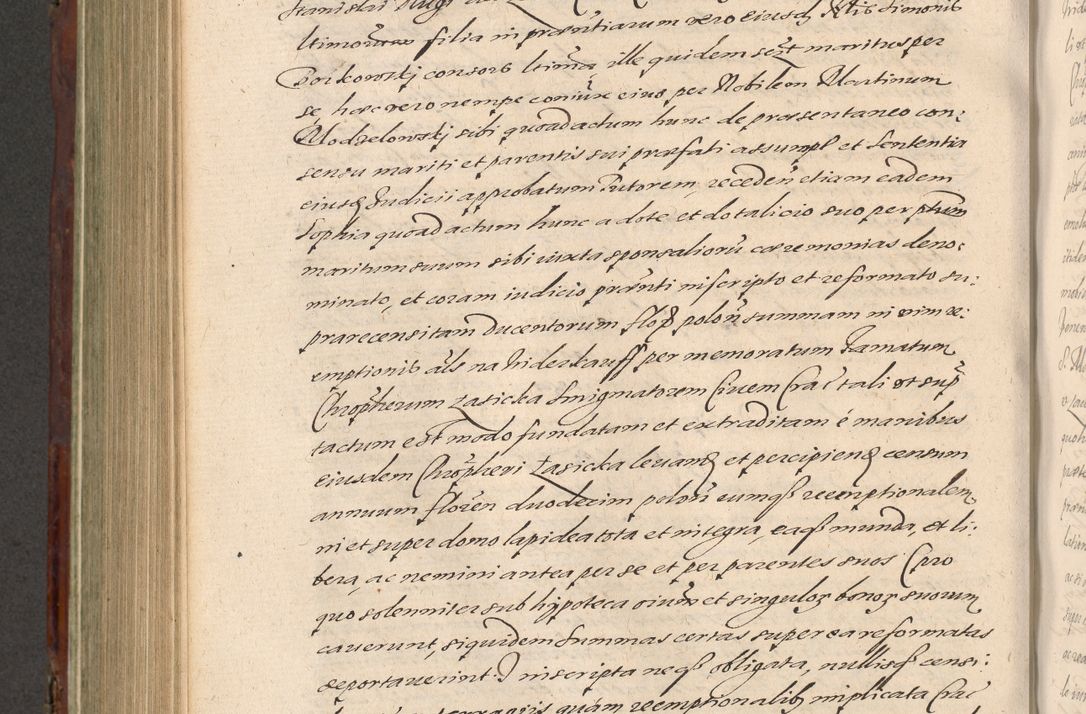 ltimorum filia in praesentiarum vero eiusdem Nlis Simonis
Borkowskj consors ltima, ille quidem seu maritus per
se, haec vero nempe coniux eius per Nobilem Martinum
Modzelowskj sibi quoad actum hunc de praesentaneo con:
sensu mariti et parentis sui praefati assumpt et sententia
eiusd Judicii approbatum Tutorem, receden etiam eadem
Sophia quoad actum hunc a dote et dotalicio suo per ptum
maritum suum sibi iuxta sponsaliorũ caeremonias deno:
minato, et coram iudicio praenti inscripto et reformato su:
prarecensitam Ducentorum flor polon summam in vim re:
emptionis als na Widerkauff per memoratum Famatum
Chropherum Zasicka Smigmatorem Civem Crac tali ut sup
tactum est modo fundatam et extraditam é manibus
eiusdem Chropheri Zasicka levand et percipiend censum
annuum floren duodecim polon eumq reemptionalem
in et super domo lapidea tota et integra, eaq munda, et li:
bera, ac nemini antea per se et per parentes suos (pro
quo solenniter sub hypoteca oium et singulor bonor suorum
caverunt, siquidem summas certas super ea reformatas
deportaverint) inscripta neq obligata, nullisq censi:
quam reemptionalib implicata Crac